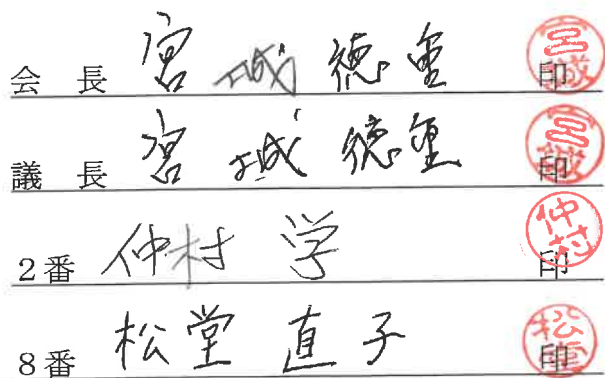 会 長 宮城 徳重 印 宮城
議 長 宮城 徳重 印 宮城
2番 仲村 学 印 仲村
8番 松堂 直子 印 松堂